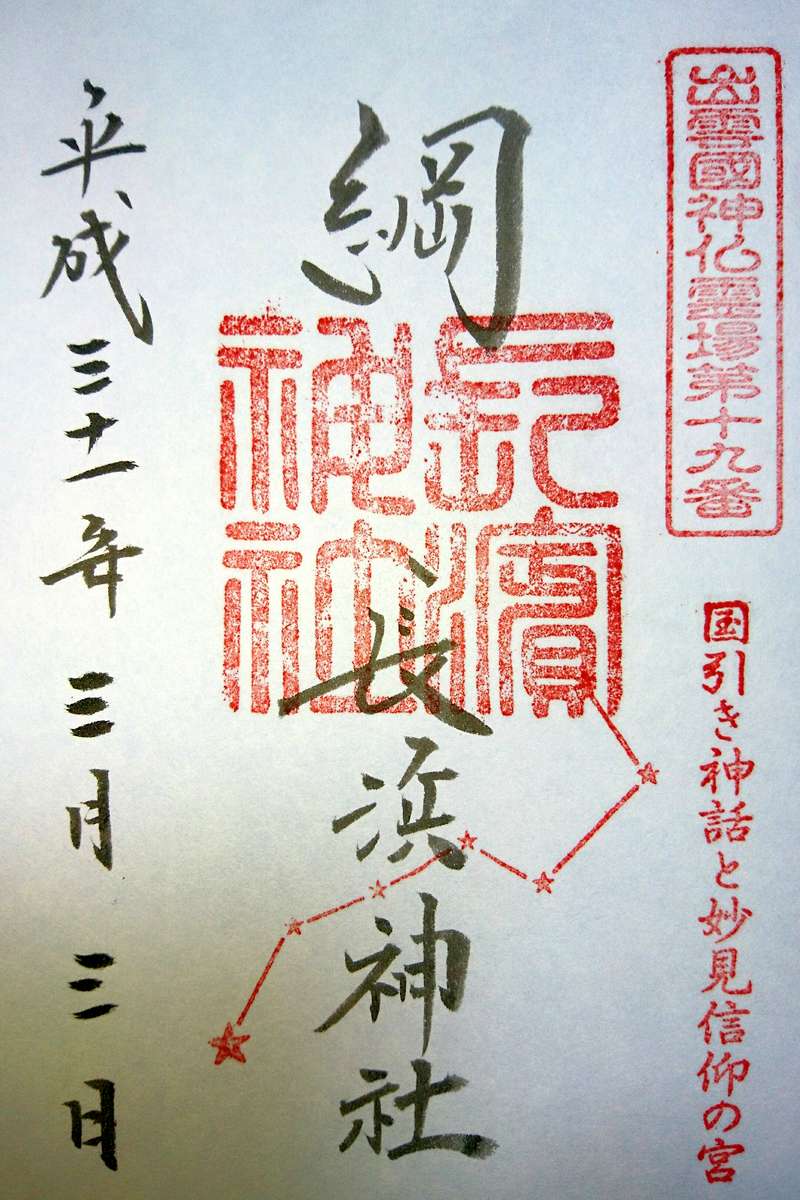 出雲國神仏霊場第十九番
国引き神話と妙見信仰の宮
綱
長浜神社
長濱
神社
平成三十一年三月三日